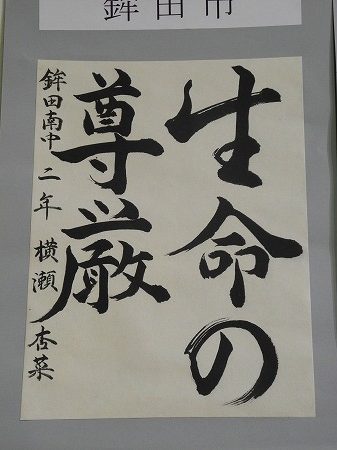 鉾田市
生命の
尊厳
鉾田南中二年 横瀬 杏菜